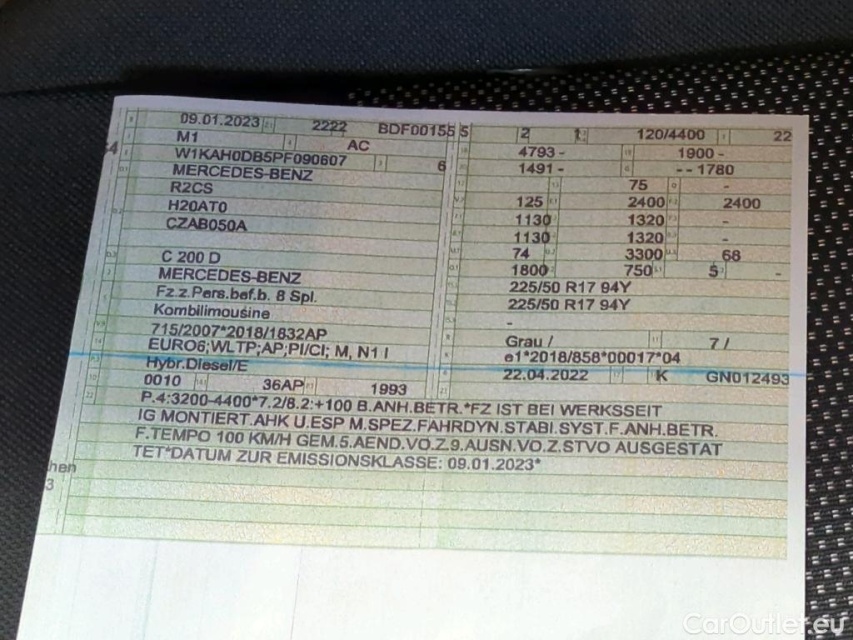 09.01.2023 2222 BDF00155 5
M1 AC
W1KAH0DB5PF090607 6
MERCEDES-BENZ
R2CS
H20AT0
CZAB050A
C 200 D
MERCEDES-BENZ
Fz.z.Pers.bef.b. 8 Spl.
Kombilimousine
715/2007*2018/1832AP
EURO6;WLTP;AP;PI/CI; M, N1 I
Hybr.Diesel/E
0010 36AP 1993
2 120/4400 22
4793 - 1900 -
1491 - - - 1780
75 -
125 2400 2400
1130 1320 -
1130 1320 -
74 3300 68
1800 750 -
225/50 R17 94Y
225/50 R17 94Y
-
Grau / 7 /
e1*2018/858*00017*04
22.04.2022 K GN012493
P.4:3200-4400*7.2/8.2:+100 B.ANH.BETR.*FZ IST BEI WERKSSEIT
IG MONTIERT.AHK U.ESP M.SPEZ.FAHRDYN.STABI.SYST.F.ANH.BETR.
F.TEMPO 100 KM/H GEM.5.AEND.VO.Z.9.AUSN.VO.Z.STVO AUSGESTAT
TET*DATUM ZUR EMISSIONSKLASSE: 09.01.2023*
hen
3
CarOutlet.eu